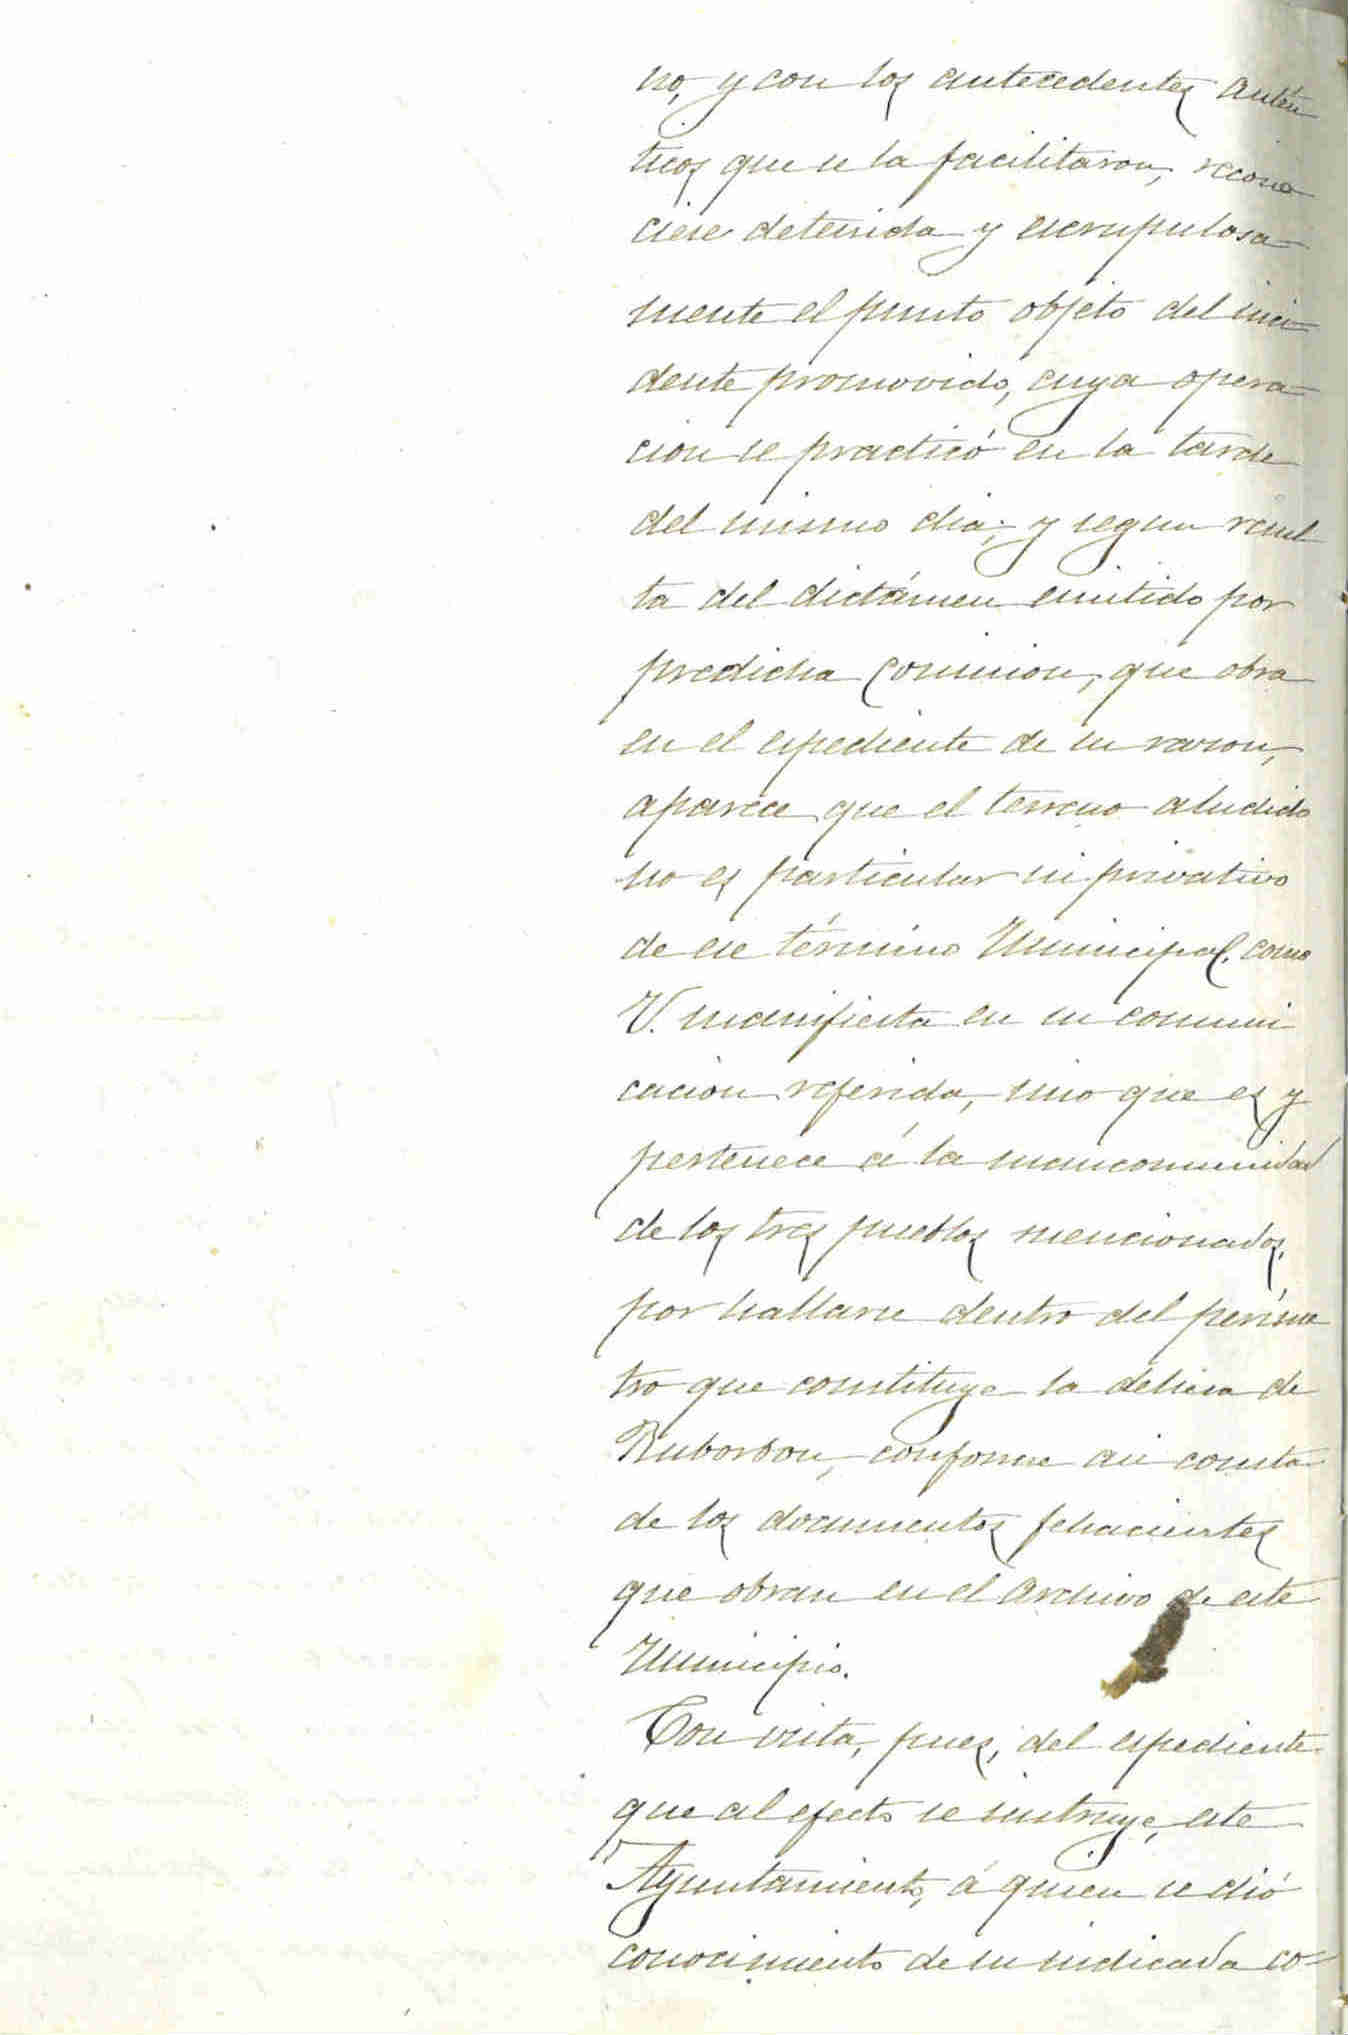 no, y con los antecedentes autén
ticos que se la facilitaron, recono
ciese detenida y escrupulosa
mente el punto objeto del inci
dente promovido, cuya opera
cion se practicó en la tarde
del mismo dia; y segun resul
ta del dictámen emitido por
predicha Comision, que obra
en el espediente de su razon,
aparece que el terreno aludido
no es particular ni privativo
de ese término Municipal, como
V. manifiesta en su comuni
cacion referida, sino que es y
pertenece á la mancomunidad
de los tres pueblos mencionados,
por hallarse dentro del períme
tro que constituye la dehesa de
Ruborbon, conforme asi consta
de los documentos fehacientes
que obran en el Archivo de este
Municipio.
Con vista, pues, del espediente
que al efecto se instruye, este
Ayuntamiento, á quien se dió
conocimiento de su indicada co-